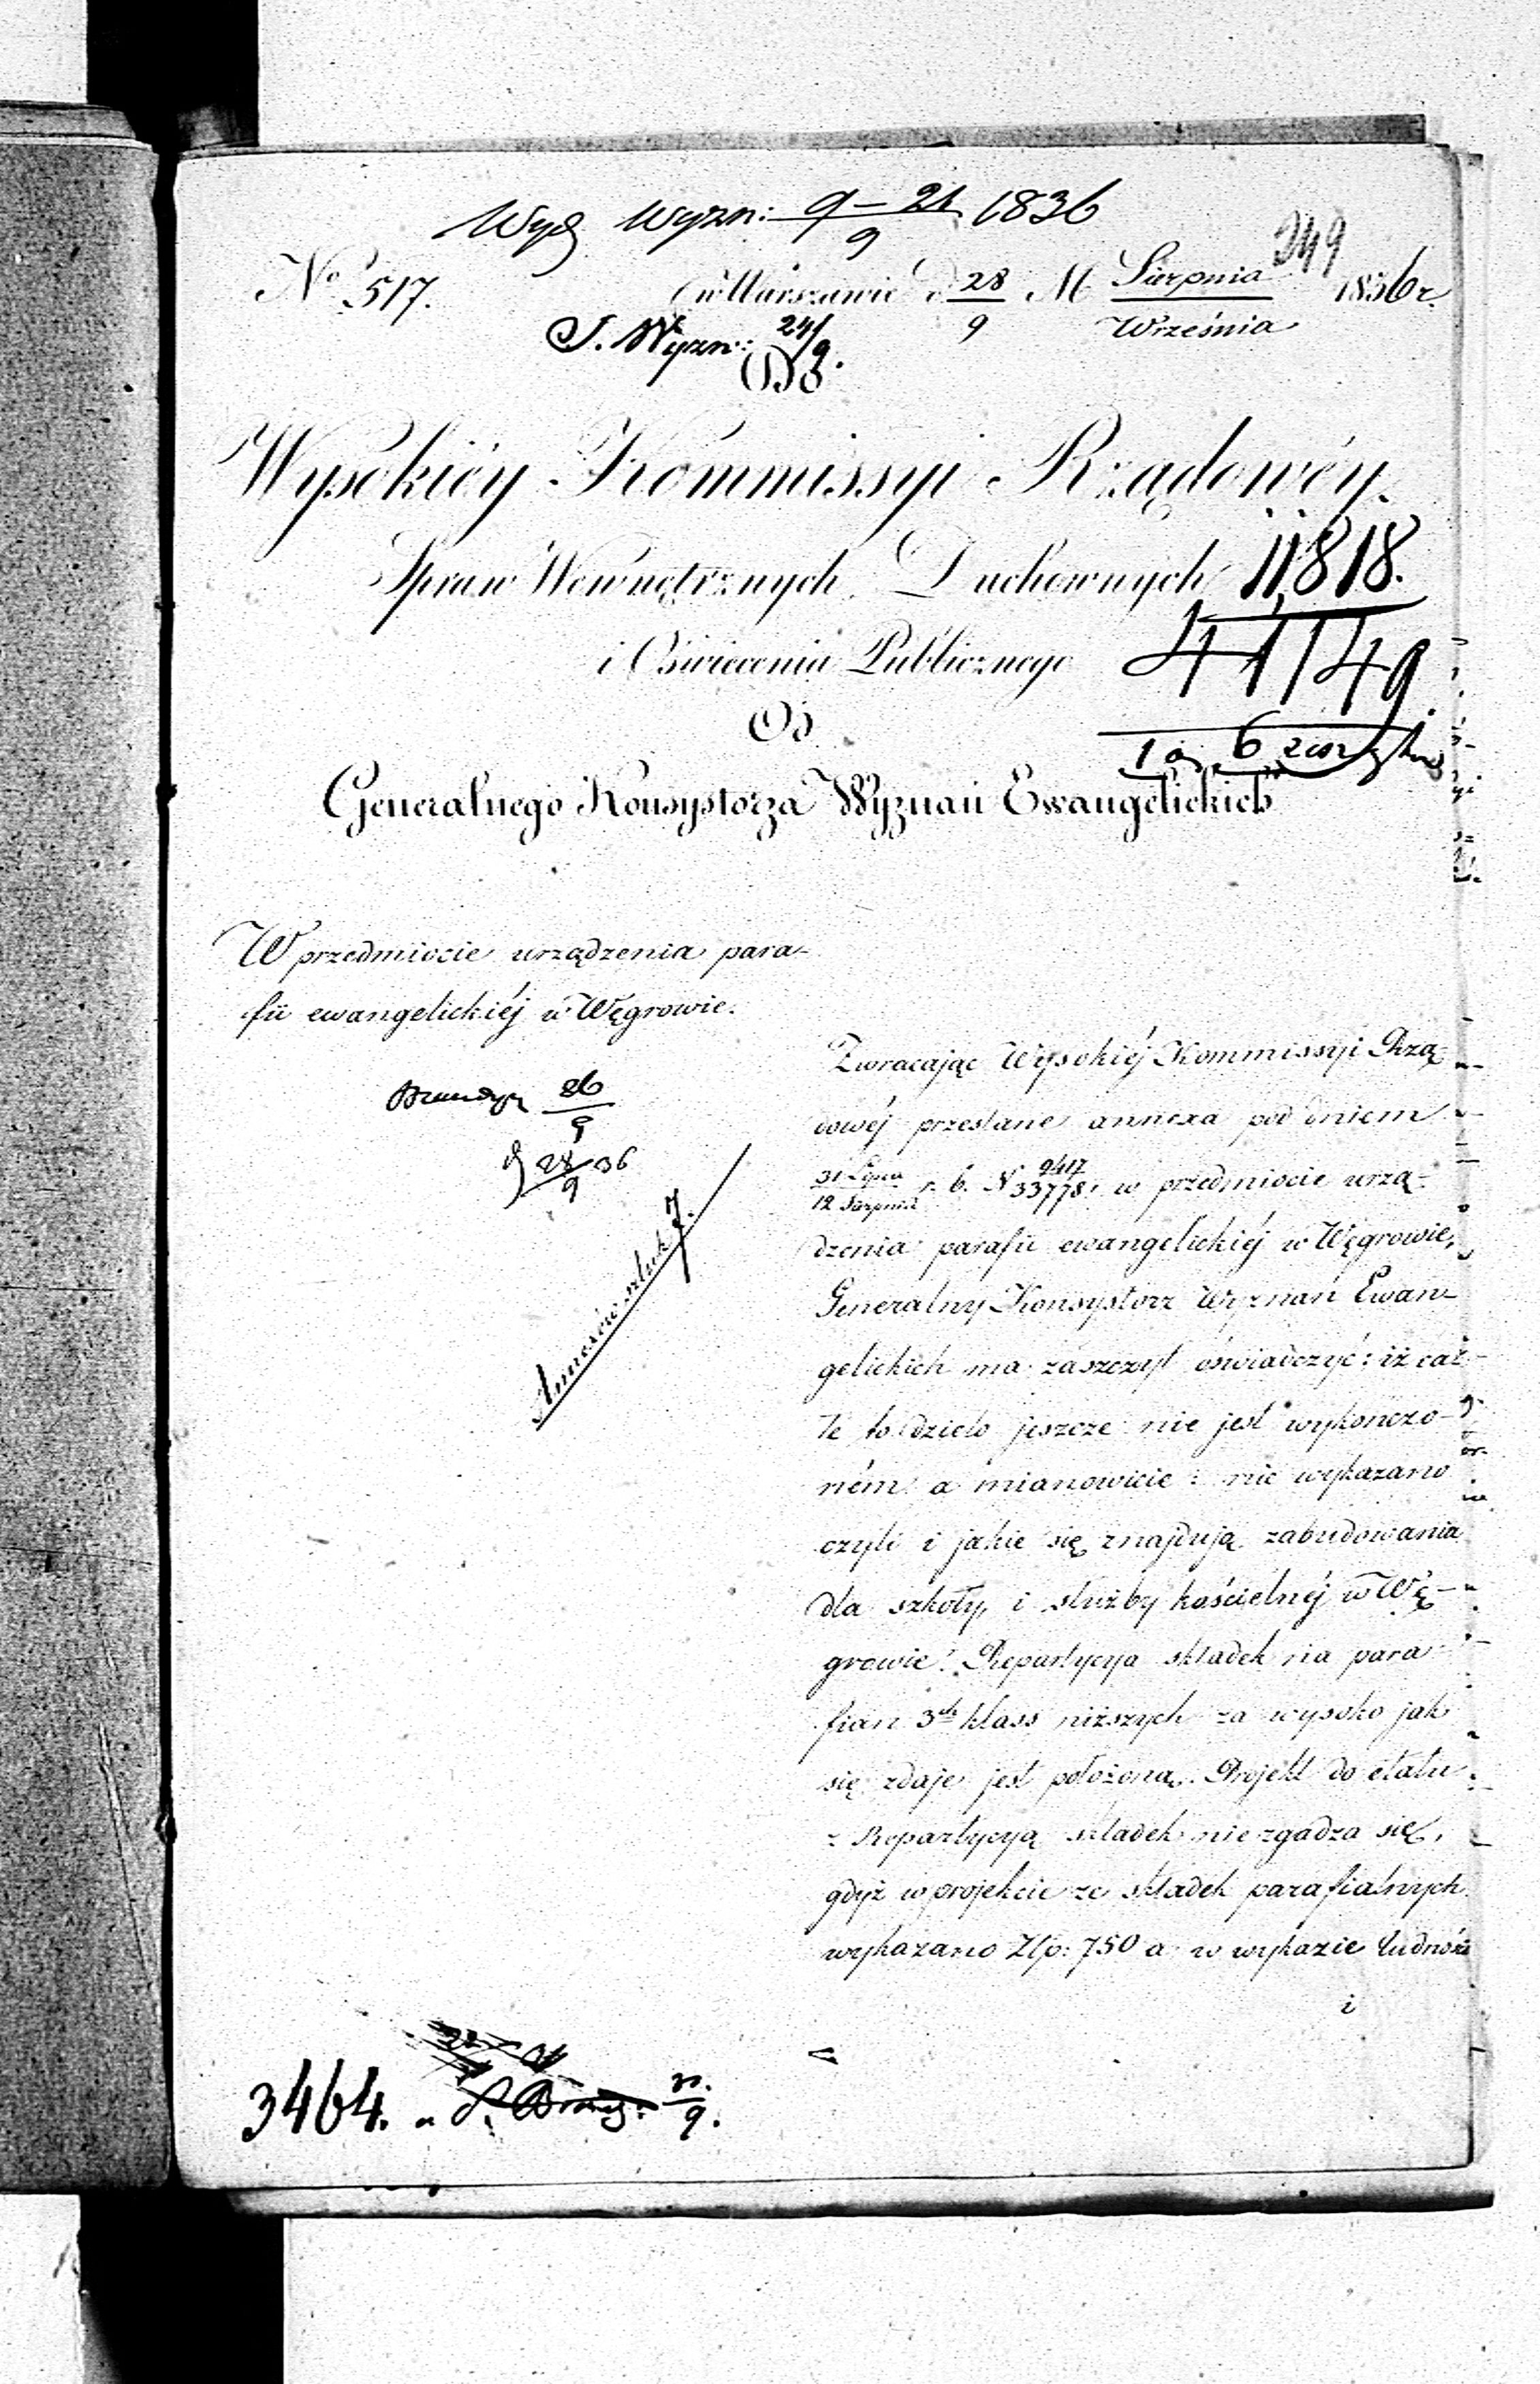 Wyd Wyzn: 9–21/9 1836
249
No 517. w Warszawie d 28/9 M Sierpnia/Września 1836 r.
J. Wyzn: 24/9.
Do
Wysokiéy Kommissyi Rządowéy
Spraw Wewnętrznych, Duchownych 11,818.
i Oświecenia Publicznego 41149.
Od 1 a 6 zeszytów
Generalnego Konsystorza Wyznań Ewangelickich
W przedmiocie urządzenia para-
fii ewangelickiéj w Węgrowie.
26/9
28/9 36
Annexów sztuk 7.
Zwracając Wysokiéj Kommissyi Rzą-
dowéj przesłane annexa pod dniem
31 Lipca/12 Sierpnia r. b. N 9417/33778. w przedmiocie urzą-
dzenia parafii ewangelickiéj w Węgrowie,
Generalny Konsystorz Wyznań Ewan-
gelickich ma zaszczyt oświadczyć: iż cał-
te to dzieło jeszcze nie jest wykończo-
ném a mianowicie: nie wykazano
czyli i jakie się znajdują zabudowania
dla szkoły, i służby kościelnéj w Wę-
growie. Repartycya składek na para-
fian 3ch klass niższych za wysoko jak
się zdaje jest położona. Projekt do etatu
z Repartycyą składek nie zgadza się,
gdyż w projekcie ze składek parafialnych
wykazano Złp: 750 a w wykazie ludnośći
i
3464.